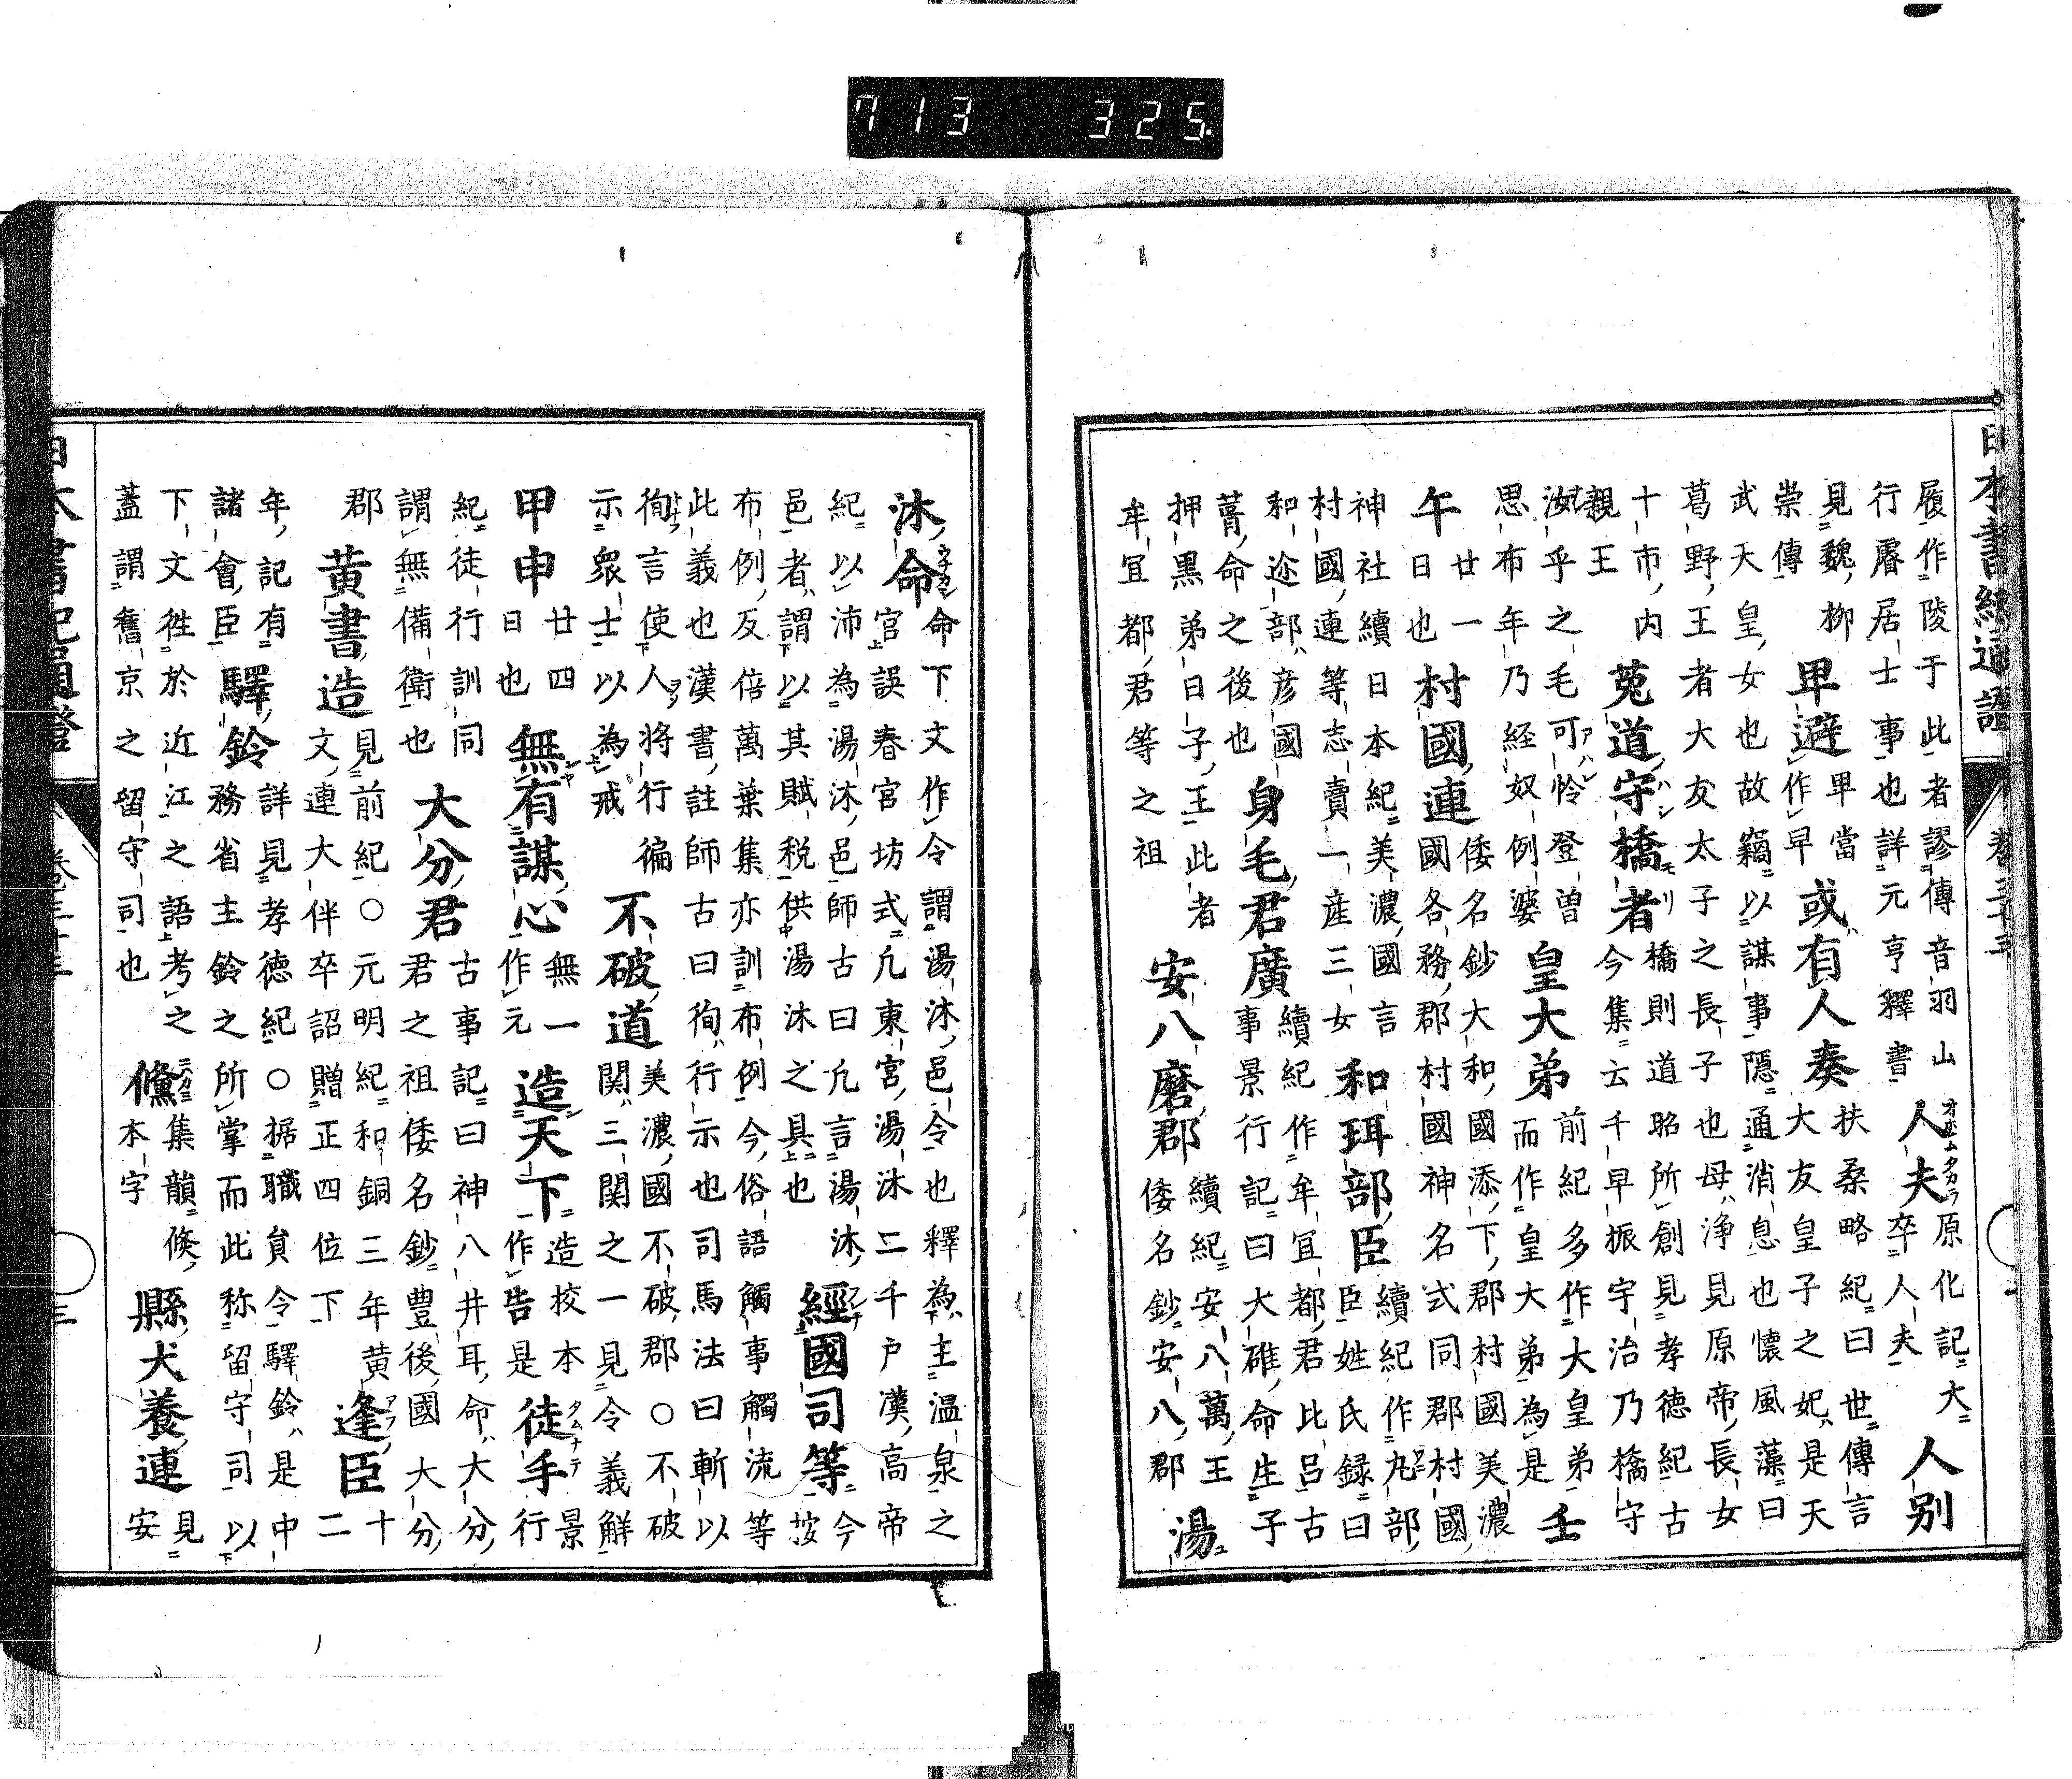 日本書紀通證
卷三十三
履作陵于此者謬傳音羽山
行膺居士事也詳元亨釋書
人夫
オホムタカラ
原化記大
卒人夫
人別
見魏柳
崇傳
卑避
卑當
作早
或有人奏
扶桑略紀曰世傳言
大友皇子之妃是天
武天皇女也故竊以謀事隱通消息也懷風藻曰
葛野王者大友太子之長子也母浄見原帝長女
十市内
親王
菟道守橋者
橋則道昭所創見孝徳紀古
今集云千早振宇治乃橋守
汝乎之毛可怜登曽
思布年乃経奴例婆
皇大弟
前紀多作大皇弟
而作皇大弟為是
壬
午
廿一
日也
村國連
倭名鈔大和國添下郡村國美濃
國各務郡村國神名式同郡村國
神社續日本紀美濃國言
村國連等志賣一産三女
和珥部臣
續紀作丸部
臣姓氏録曰
和迩部彦國
葺命之後也
身毛君廣
續紀作牟冝都君比呂古
事景行記曰大碓命生子
押黒弟日子王此者
牟冝都君等之祖
安八磨郡
續紀安八萬王
倭名鈔安八郡
湯
沐命
命下文作令謂湯沐邑令也釋為主温泉之
官誤春宮坊式凡東宮湯沐二千戸漢高帝
紀以沛為湯沐邑師古曰凡言湯沐
邑者謂以其賦税供湯沐之具也
經國司等
今
按
布例反倍萬葉集亦訓布例今俗語觸事觸流等
此義也漢書註師古曰徇行示也司馬法曰斬以
徇言使人将行徧
示衆士以為戒
不破道
美濃國不破郡○不破
関三関之一見令義解
甲申
廿四
日也
無有謀心
無一
作元
造天下
造校本
作告是
徒手
タムナテ
景
行
紀徒行訓同
謂無備衛也
大分君
古事記曰神八井耳命大分
君之祖倭名鈔豊後國大分
郡
黄書造
見前紀○元明紀和銅三年黄
文連大伴卒詔贈正四位下
逢臣
十
二
年記有
諸會臣
驛鈴
詳見孝徳紀○据職員令驛鈴是中
務省主鈴之所掌而此称留守司以
下文徃於近江之語考之
蓋謂舊京之留守司也
儵
集韻倏
本字
縣犬養連
見
安
日本書紀通證
卷三十三
三
713 325.